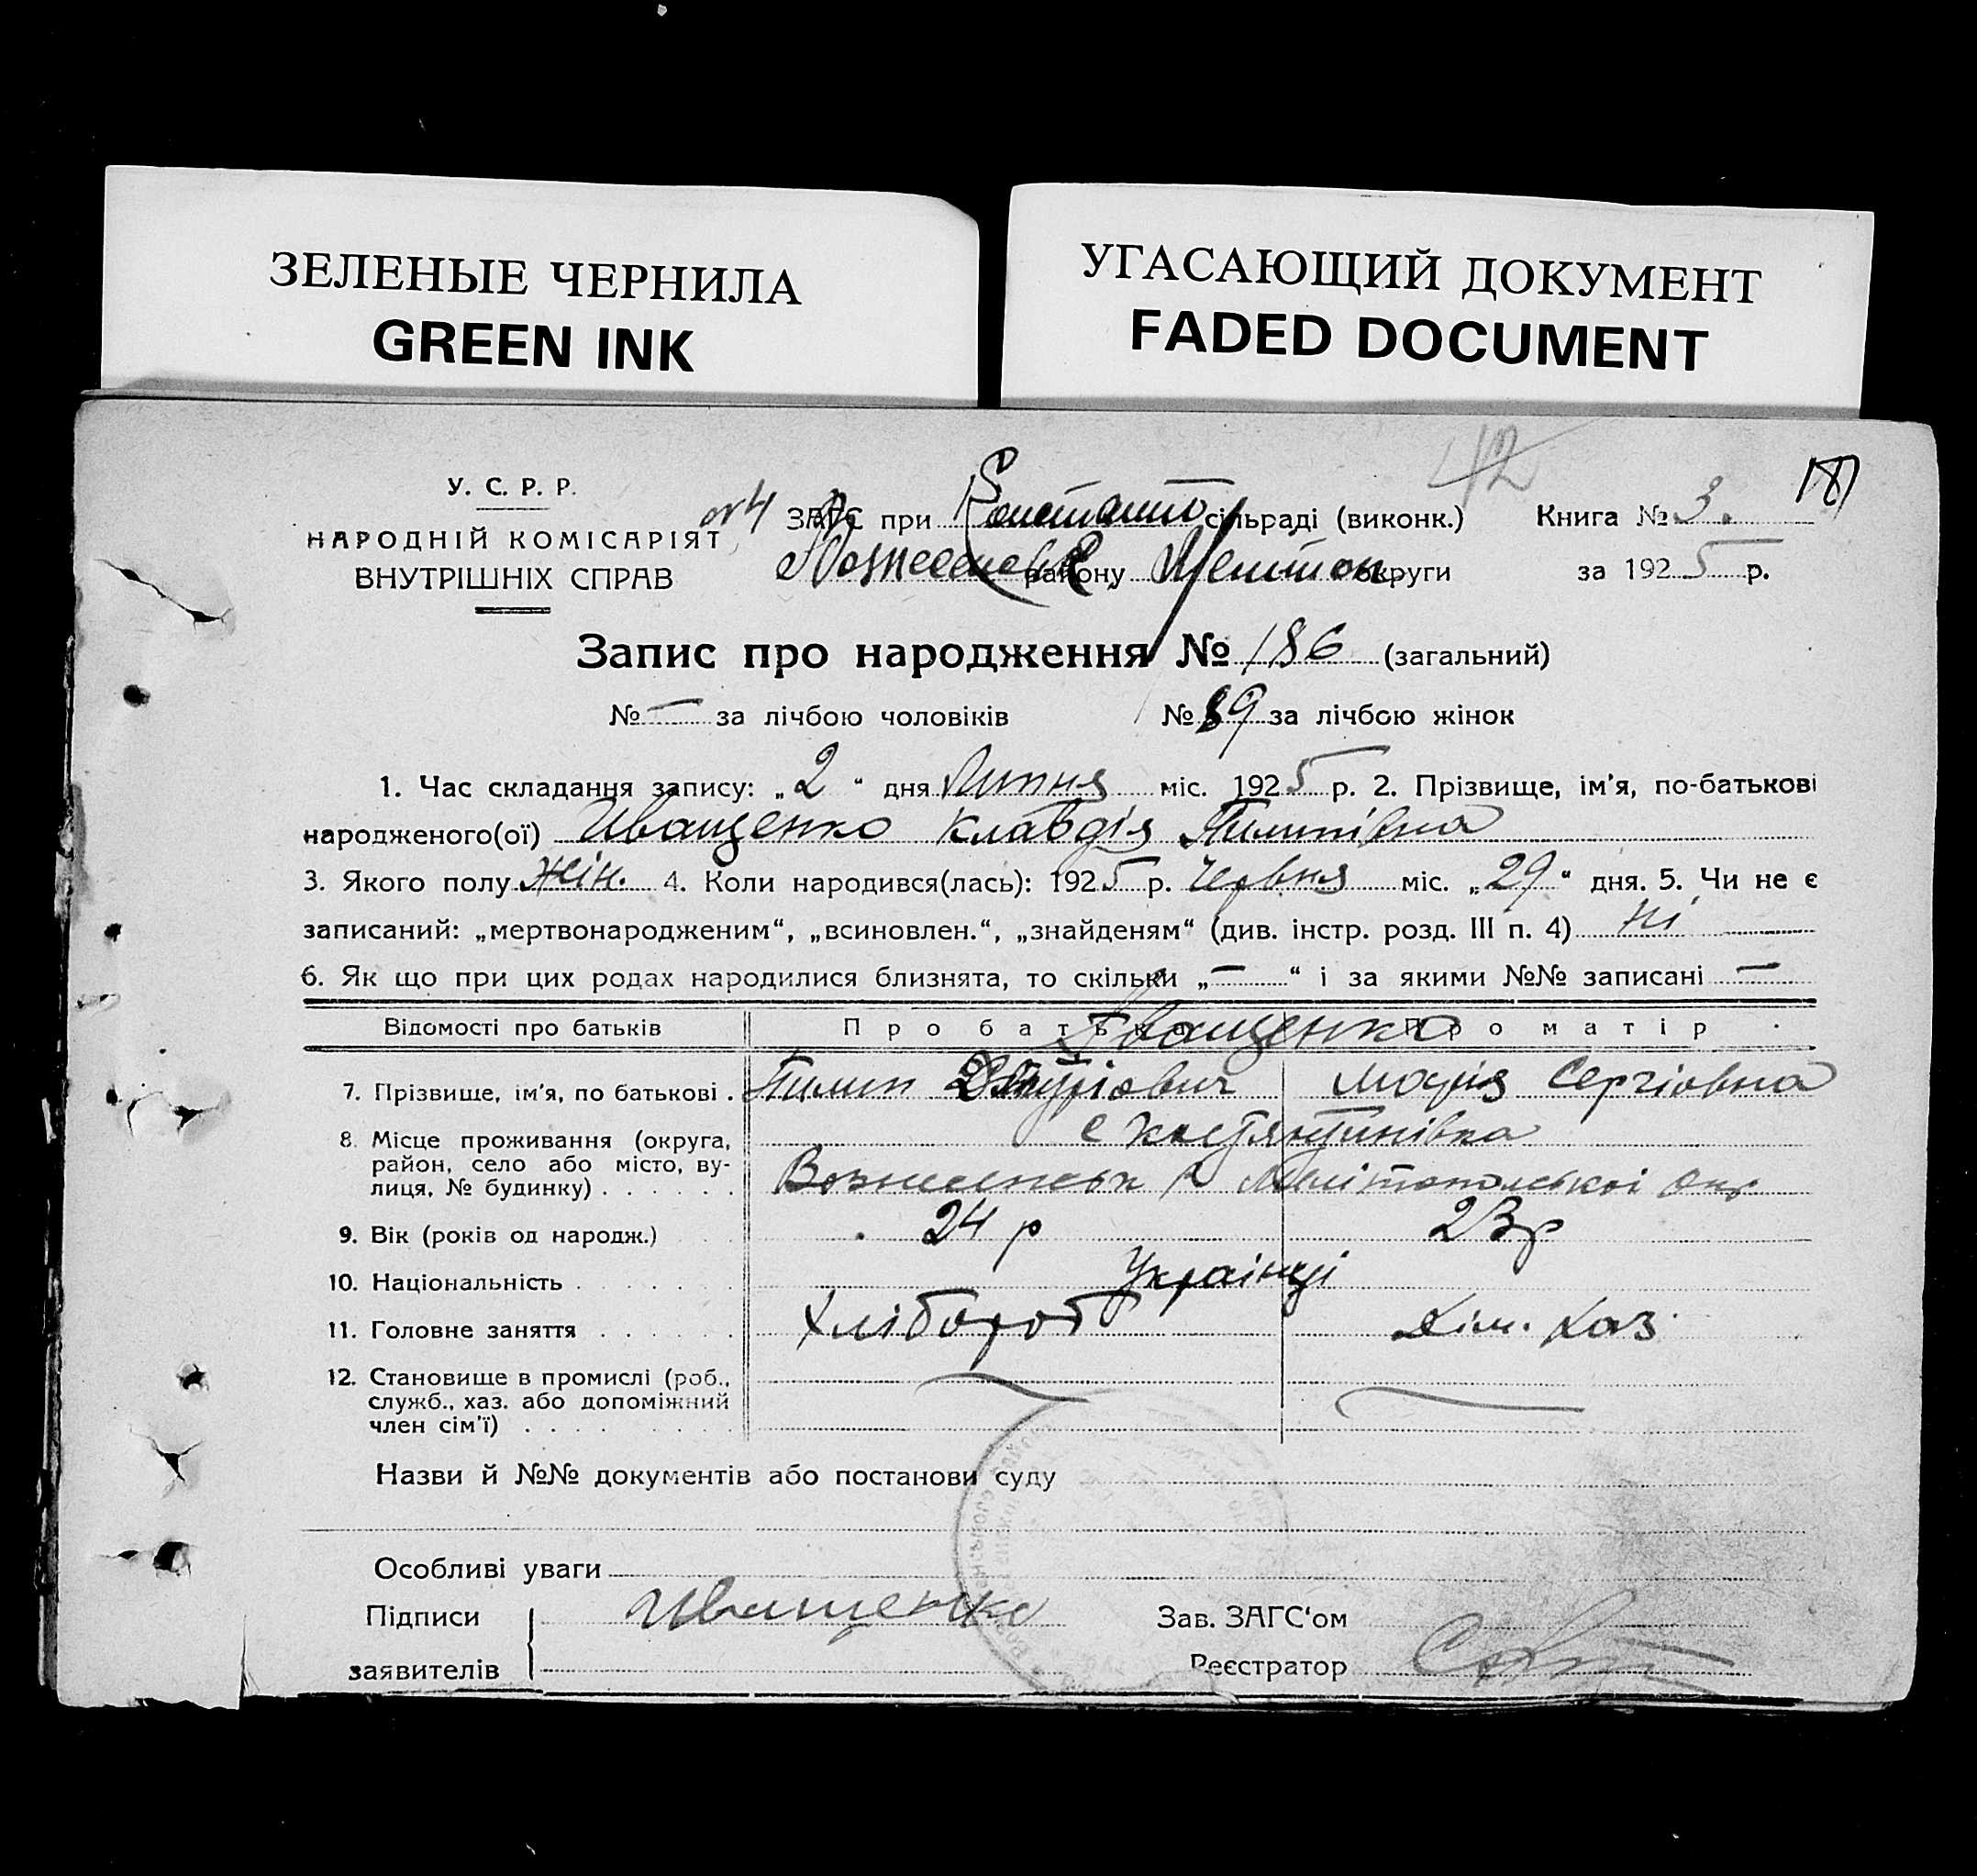 ЗЕЛЕНЫЕ ЧЕРНИЛА
GREEN INK
УГАСАЮЩИЙ ДОКУМЕНТ
FADED DOCUMENT
42
У. С. Р. Р.
НАРОДНІЙ КОМІСАРІЯТ
ВНУТРІШНІХ СПРАВ
ЗАГС при Констант сільраді (виконк.)
Книга № 3.
району Мелітоп. округи
за 1925 р.
Запис про народження № 186 (загальний)
№ — за лічбою чоловіків № 89 за лічбою жінок
1. Час складання запису: „2“ дня Липня міс. 1925 р. 2. Прізвище, ім’я, по-батькові
народженого(ої) Иващенко Клавдія Пилипівна
3. Якого полу жін. 4. Коли народився(лась): 1925 р. Червня міс. „29“ дня. 5. Чи не є
записаний: „мертвонародженим“, „всиновлен.“, „знайденям“ (див. інстр. розд. III п. 4) ні
6. Як що при цих родах народилися близнята, то скільки „—“ і за якими №№ записані —
Відомості про батьків Про батька Про матір
Іващенко
7. Прізвище, ім’я, по батькові . Пилип Марія Сергіовна
8. Місце проживання (округа, с Костянтинівка
район, село або місто, ву-
лиця, № будинку) . . . . . . Вознесенськ р Мелітопольскоі Окр
9. Вік (років од народж.) 24 р 23 р
10. Національність . . . . . . Українці
11. Головне заняття . . . . . . Хлібороб Дім. Хаз.
12. Становище в промислі (роб.,
служб., хаз. або допоміжний
член сім’ї) . . . .
Назви й №№ документів або постанови суду
Особливі уваги
Підписи Иващенко Зав. ЗАГС‘ом
заявителів Реєстратор